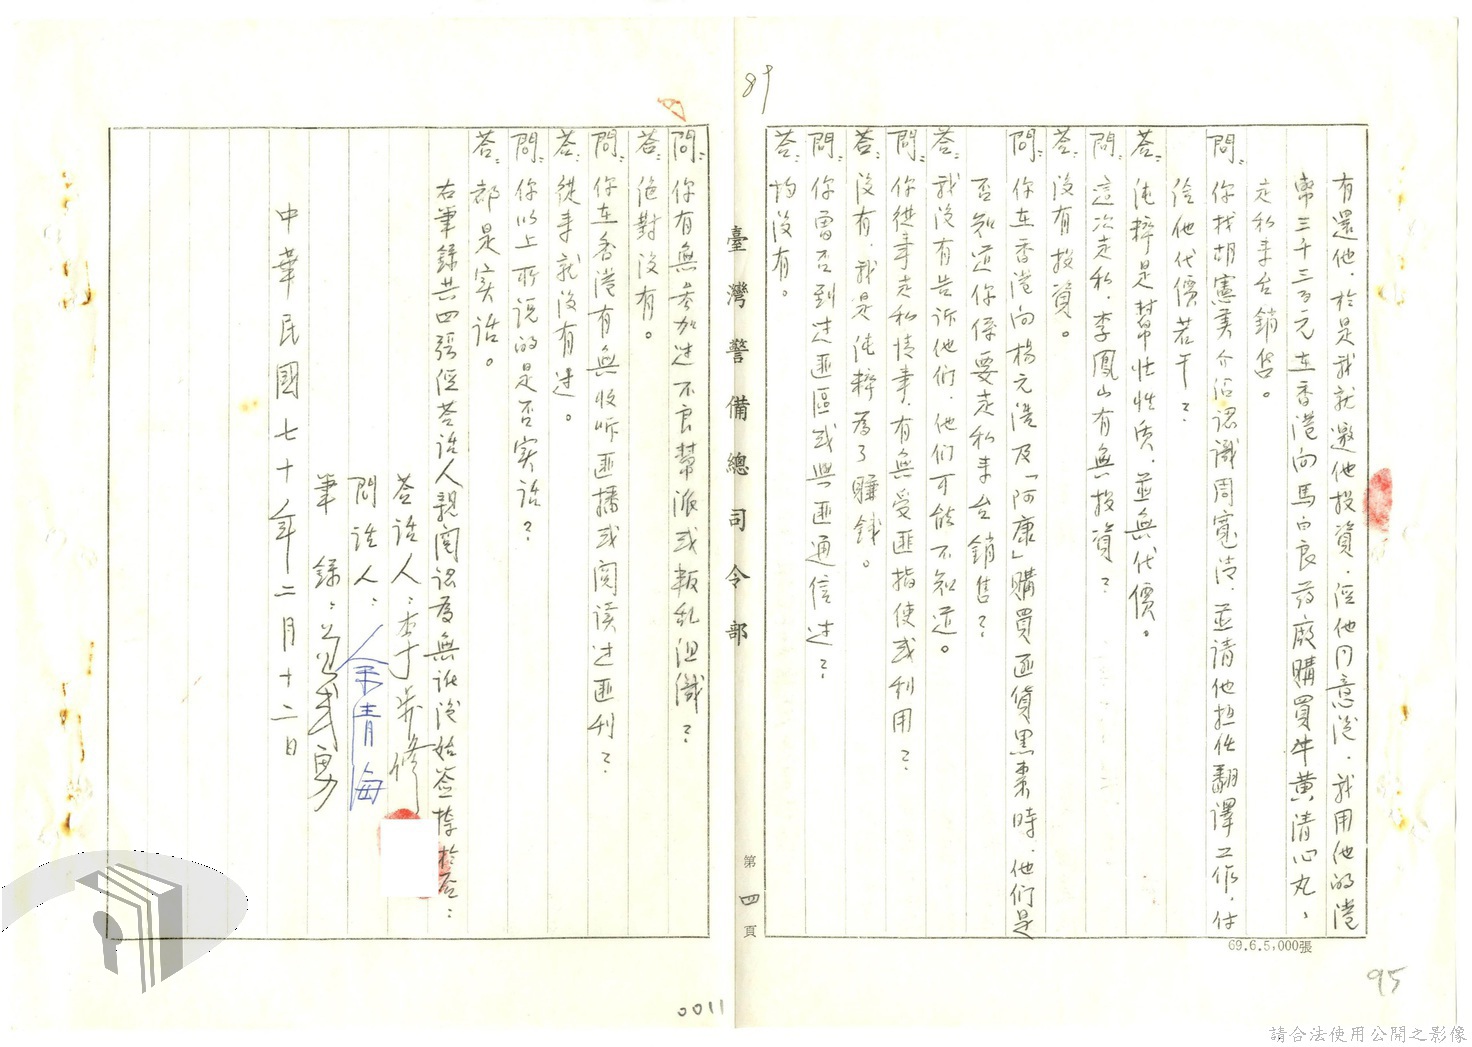 89
有還他，於是我就邀他投資，經他同意後，我用他的港
幣三千三百元在香港向馬百良药廠購買牛黄清心丸，
走私来台銷售。
問：你找胡憲美介绍認識周寬清，並請他担任翻譯工作，付
给他代價若干？
答：純粹是幫忙性质，並無代價。
問：這次走私，李鳳山有無投資？
答：沒有投資。
問：你在香港向楊元浩及「阿康」購買匪貨黑棗時，他們是
否知道你係要走私来台銷售？
答：我沒有告诉他們，他們可能不知道。
問：你從事走私情事，有無受匪指使或利用？
答：沒有，我是純粹為了賺錢。
問：你曾否到过匪區或與匪通信过？
答：均沒有。
臺灣警備總司令部
第四頁
問：你有無参加过不良幫派或叛乱组織？
答：絶對沒有。
問：你在香港有無收听匪播或阅读过匪刊？
答：從来就沒有过。
問：你以上所說的是否实话？
答：都是实话。
右筆錄共四張經答話人親閱認為無訛後始簽捺於后：
答話人：李
問話人：余青海
筆錄：武勇
中華民國七十年二月十二日
69.6.5,000張
95
0011
請合法使用公開之影像